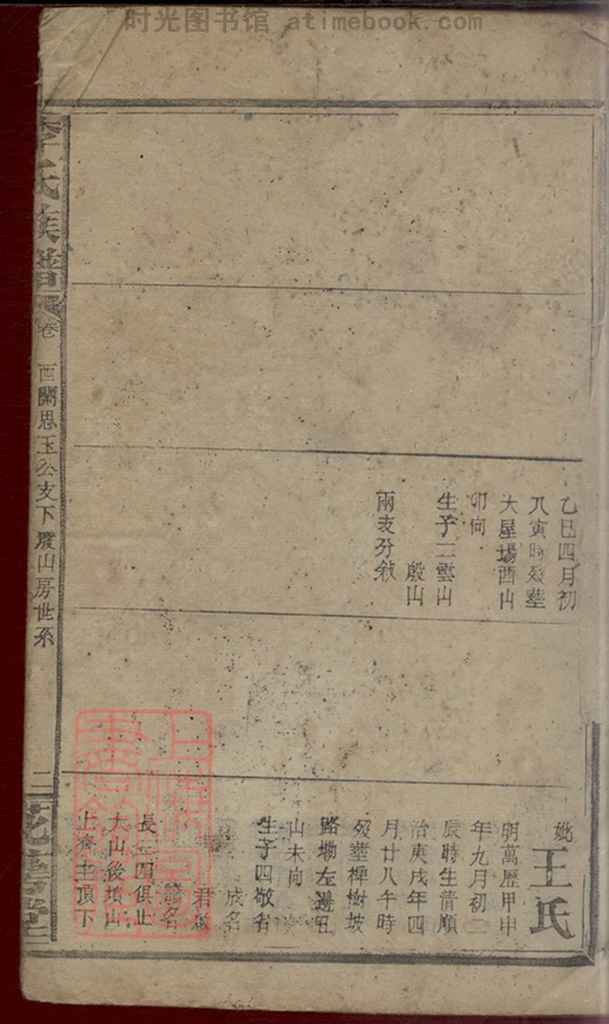 时光图书馆 atimebook.com
乙巳四月初
八寅時歿塟
大星場酉山
卯向
生子二雲山
殷山
兩表分敘
妣王氏
明萬歷甲申
年九月初二
辰時生淸順
治庚戌年四
月廿八午時
歿塟椑樹坡
路塝左邊丑
山未向
生子四敬名
成名
君名
譜名
長三四俱止
大山後墳山
上齊主頂下
李氏族譜
卷
西關思玉公支下殷山房世系
二